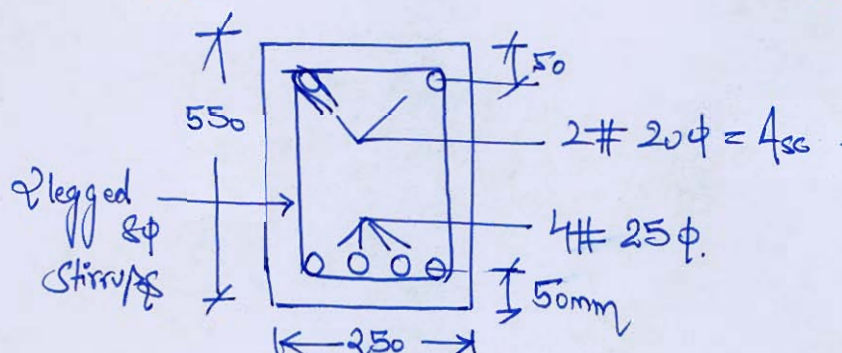 50
550
2# 20φ = Asc
2 legged
8φ
Stirrups
4# 25φ.
50mm
250